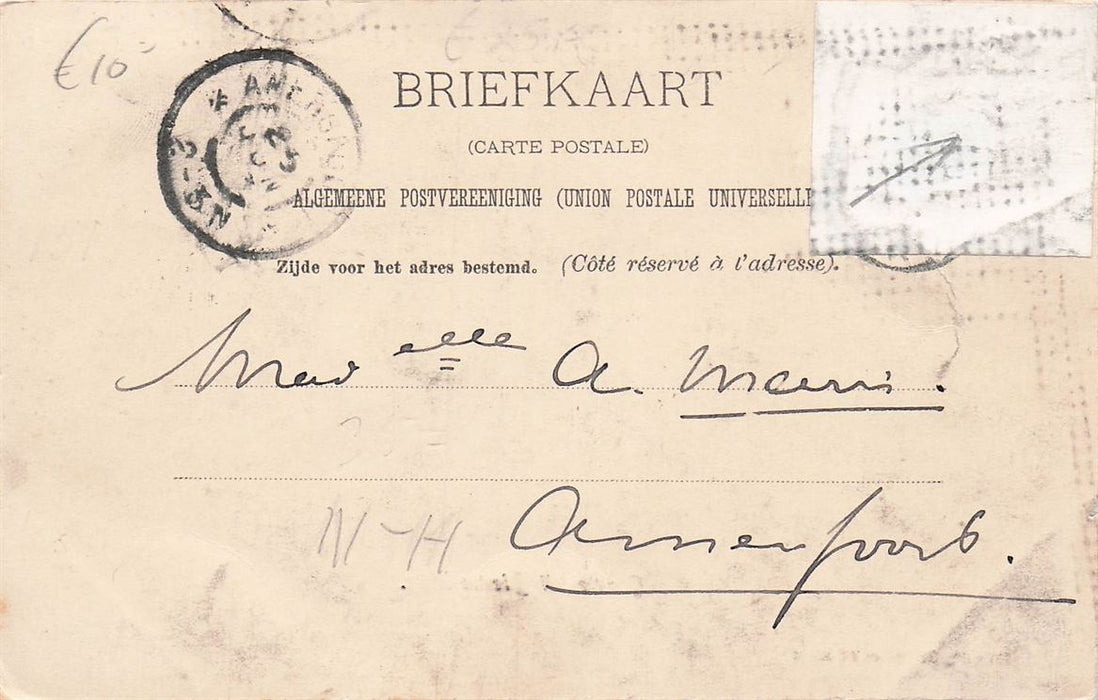 €10
BRIEFKAART
(CARTE POSTALE)
ALGEMEENE POSTVEREENIGING (UNION POSTALE UNIVERSELLE
Zijde voor het adres bestemd. (Côté réservé à l'adresse).
Mad elle A. Maris.
N-H
Amersfoort.